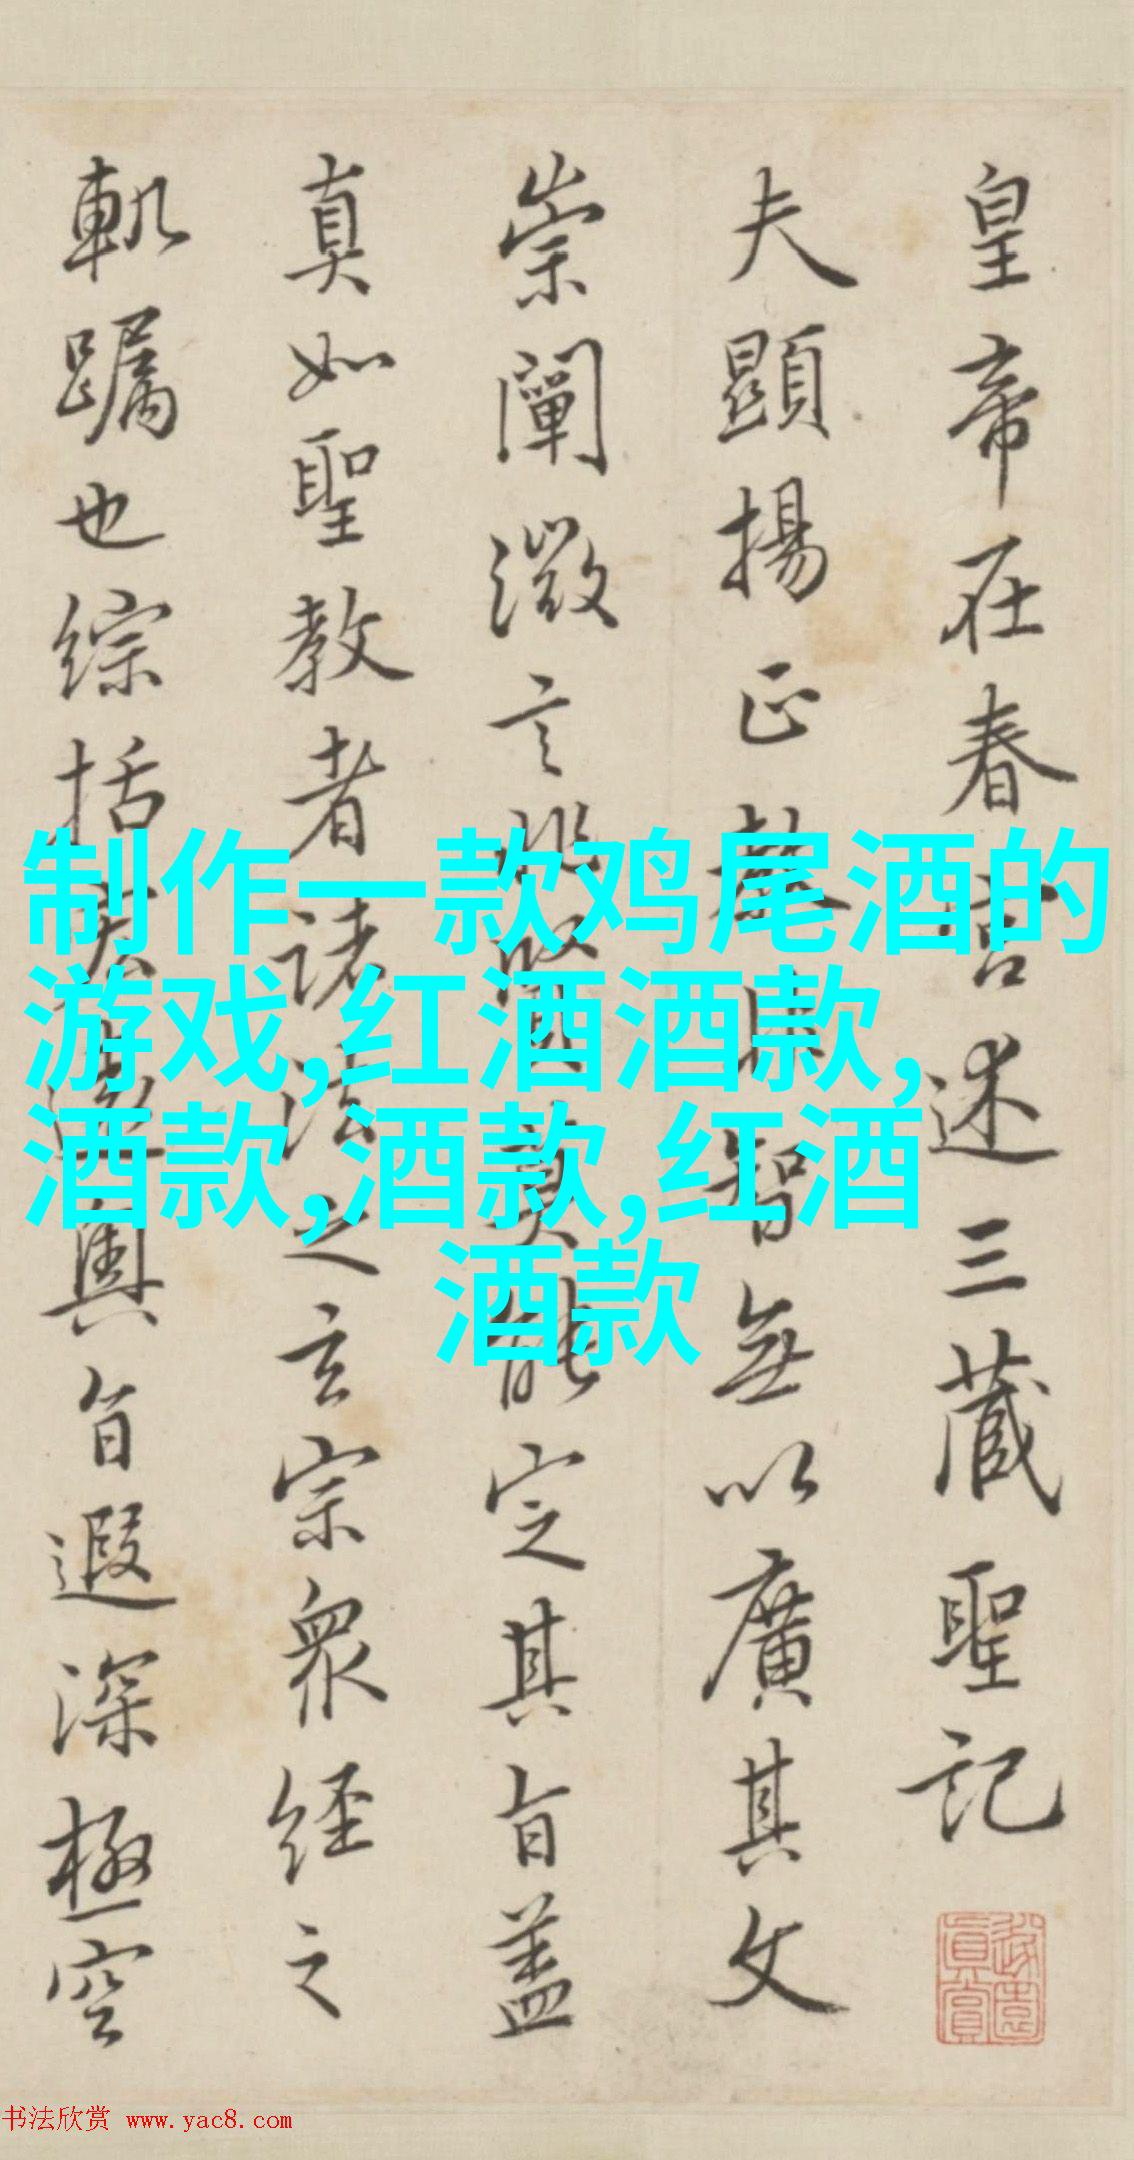 皇帝在春宮述三藏聖記
夫顯揚正教非智無以廣其文
崇闡微言非賢莫能定其旨蓋
真如聖教者諸法之玄宗衆經之
軌躅也綜括宏遠奧旨遐深極空
制作一款鸡尾酒的
游戏,红酒酒款,
酒款,酒款,红酒
酒款
书法欣赏 www.yac8.com